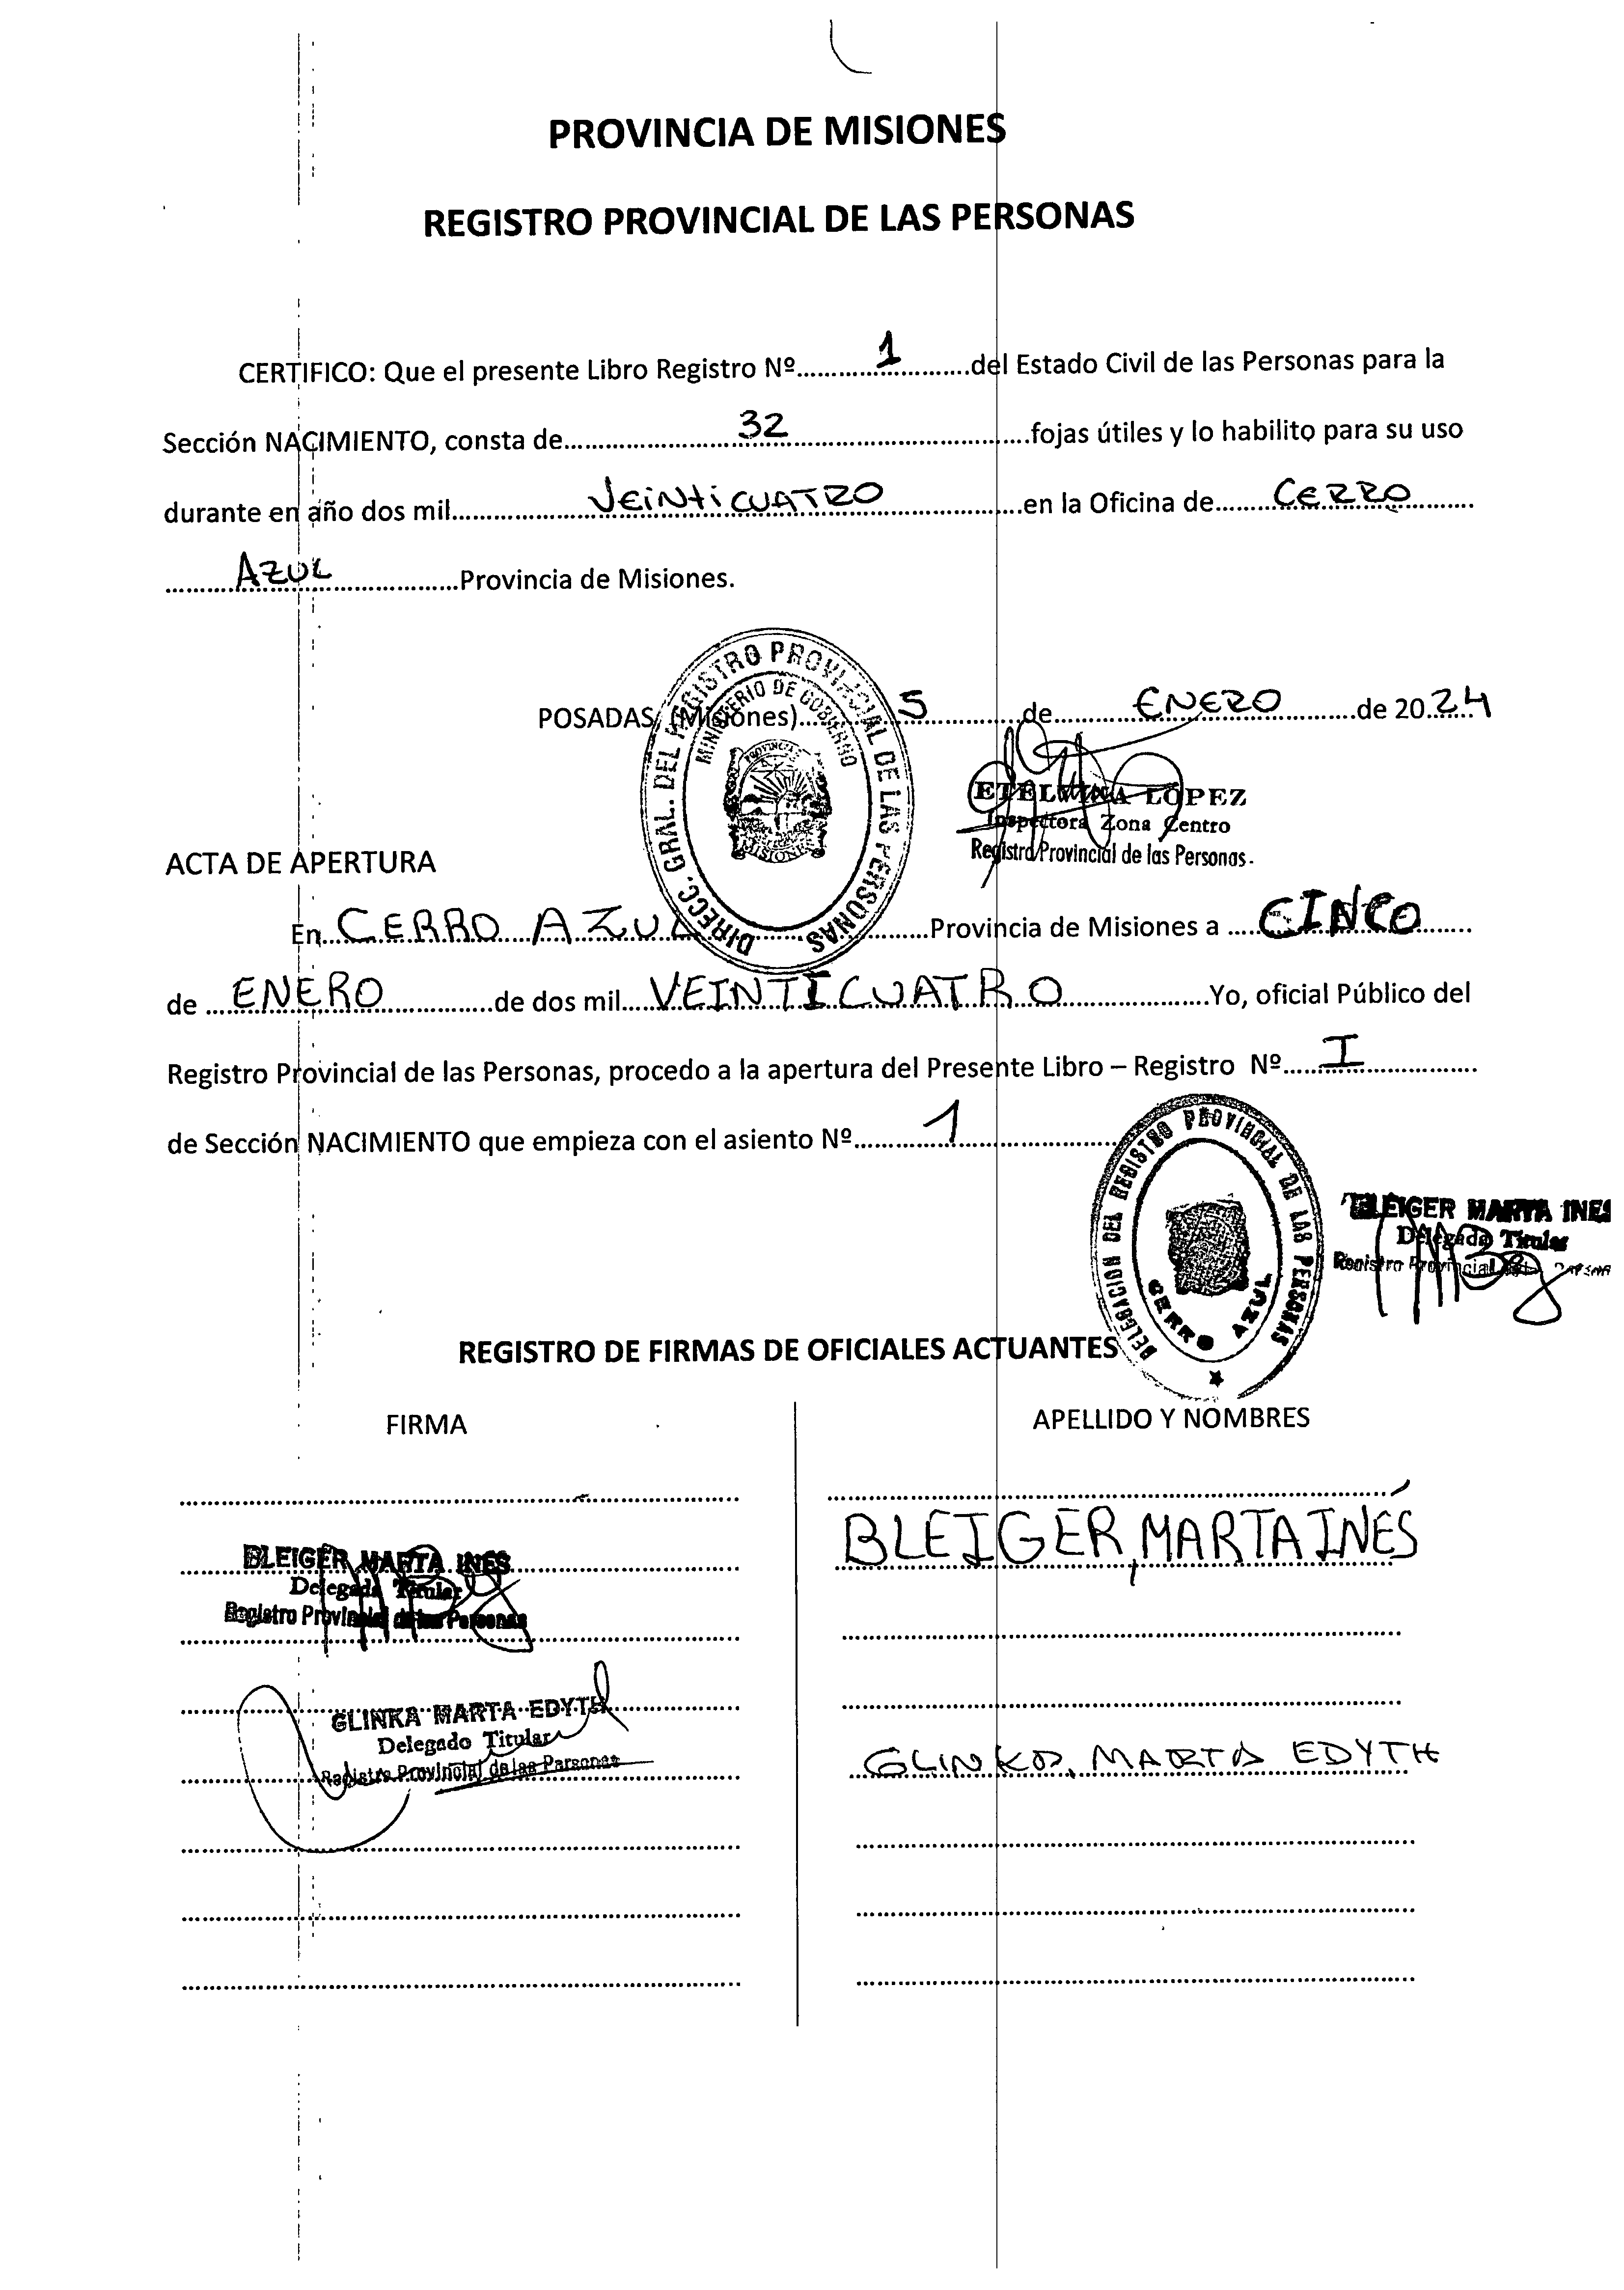 PROVINCIA DE MISIONES
REGISTRO PROVINCIAL DE LAS PERSONAS
CERTIFICO: Que el presente Libro Registro Nº..........1..........del Estado Civil de las Personas para la
Sección NACIMIENTO, consta de..........32..........fojas útiles y lo habilito para su uso
durante en año dos mil..........VEINTICUATRO..........en la Oficina de..........CERRO..........
..........AZUL..........Provincia de Misiones.
DIRECC. GRAL. DEL REGISTRO PROVINCIAL DE LAS PERSONAS
MINISTERIO DE GOBIERNO
PROVINCIA
MISIONES
POSADAS, (Misiones)..........5..........de..........ENERO..........de 20.24
ETELVINA LOPEZ
Inspectora Zona Centro
Registro Provincial de las Personas.
ACTA DE APERTURA
En..........CERRO AZUL..........Provincia de Misiones a ..........CINCO..........
de ..........ENERO..........de dos mil..........VEINTICUATRO..........Yo, oficial Público del
Registro Provincial de las Personas, procedo a la apertura del Presente Libro – Registro Nº..........I..........
de Sección NACIMIENTO que empieza con el asiento Nº..........1..........
DELEGACION DEL REGISTRO PROVINCIAL DE LAS PERSONAS
CERRO AZUL
BLEIGER MARTA INES
Delegada Titular
Registro Provincial
REGISTRO DE FIRMAS DE OFICIALES ACTUANTES
FIRMA
APELLIDO Y NOMBRES
BLEIGER MARTA INES
Delegada Titular
Registro Provincial de las Personas
BLEIGER, MARTA INÉS
GLINKA MARTA EDYTH
Delegado Titular
Registro Provincial de las Personas
GLINKA, MARTA EDYTH